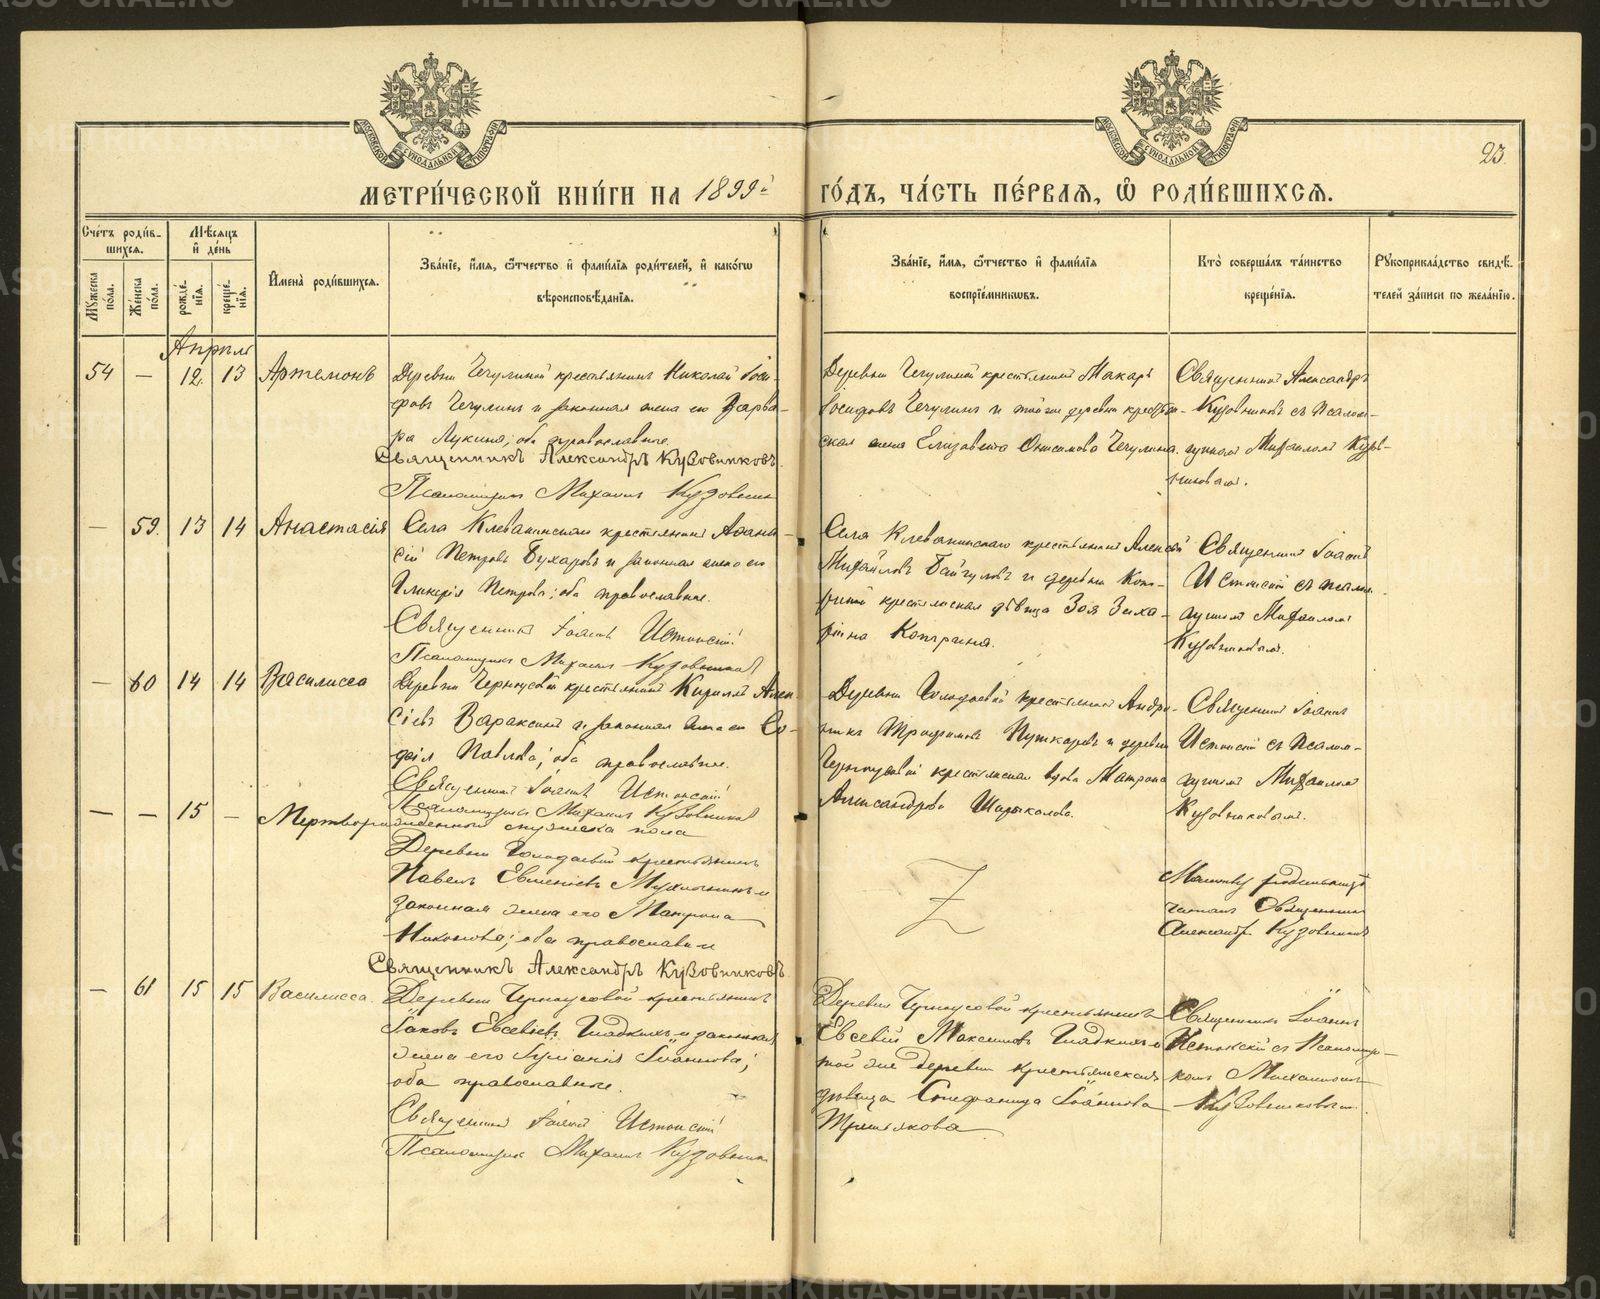 METRIKI.GASO-URAL.RU
23.
МЕТРИ́ЧЕСКОЙ КНИ́ГИ НА 1899й ГО́ДЪ, ЧА́СТЬ ПЕ́РВАЯ, Ѡ РОДИ́ВШИХСЯ.
Сче́тъ роди́в-
шихся.
Му́жеска по́ла.
Же́нска по́ла.
Мѣ́сяцъ
и де́нь
рожде́нія.
креще́нія.
Имена̀ роди́вшихся.
Зва́ніе, и́мя, ѻ́тчество и фами́лія роди́телей, и како́гѡ
вѣроисповѣ́данія.
Зва́ніе, и́мя, ѻ́тчество и фами́лія
воспріе́мникѡвъ.
Кто̀ соверша́лъ та́инство
креще́нія.
Рꙋкоприкла́дство свидѣ́-
телей за́писи по жела́нію.
Апрѣль
54 — 12. 13 Артемонъ
Деревни Чечулиной крестьянинъ Николай Іоси-
фовъ Чечулинъ и законная жена его Варва-
ра Лукина; оба православные.
Священникъ Александръ Кузовниковъ.
Псаломщикъ Михаилъ Кузовников
Деревни Чечулиной крестьянинъ Макаръ
Іосифовъ Чечулинъ и той же деревни крестьян-
ская жена Елизавета Онисимова Чечулина.
Священникъ Александръ
Кузовниковъ съ псалом-
щикомъ Михаиломъ Кузов-
никовымъ.
— 59. 13 14 Анастасія
Села Клевакинскаго крестьянинъ Афана-
сій Петровъ Бухаровъ и законная жена его
Гликерія Петрова; оба православные.
Священникъ Іоаннъ Истокскій
Псаломщикъ Михаилъ Кузовников
Села Клевакинскаго крестьянинъ Алексѣй
Михайловъ и деревни
крестьянская дѣвица Зоя Заха-
рина
Священникъ Іоаннъ
Истокскій съ псалом-
щикомъ Михаиломъ
Кузовниковымъ.
— 60 14 14 Василисса
Деревни Черноусовой крестьянинъ Кириллъ Алек-
сіевъ Вараксинъ и законная жена его Со-
фія Павлова; оба православные.
Священникъ Іоаннъ Истокскій
Псаломщикъ Михаилъ Кузовников
Деревни крестьянинъ Андро-
никъ Трофимовъ Пушкаревъ и деревни
Черноусовой крестьянская вдова Матрона
Александрова
Священникъ Іоаннъ
Истокскій съ псалом-
щикомъ Михаиломъ
Кузовниковымъ.
— — 15 — Мертворожденный мужеска пола
Деревни крестьянинъ
Павелъ Евменіевъ и
законная жена его Матрона
Никонова; оба православные
Священникъ Александръ Кузовниковъ
Молитву родильницѣ
читалъ Священникъ
Александръ Кузовников
— 61 15 15 Василисса.
Деревни Черноусовой крестьянинъ
Іаковъ Евсевіевъ Гладкихъ и законная
жена его Іуліанія Іоаннова;
оба православные.
Священникъ Іоаннъ Истокскій
Псаломщикъ Михаилъ Кузовников
Деревни Черноусовой крестьянинъ
Евсевій Максимовъ Гладкихъ и
той же деревни крестьянская
дѣвица Стефанида Іоаннова
Третьякова
Священникъ Іоаннъ
Истокскій съ Псаломщи-
комъ Михаиломъ
Кузовниковымъ.